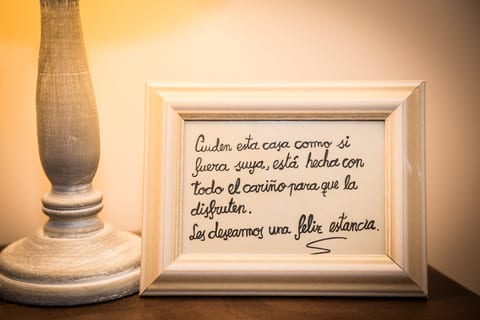 Cuiden esta casa como si
fuera suya, está hecha con
todo el cariño para que la
disfruten.
Les deseamos una feliz estancia.